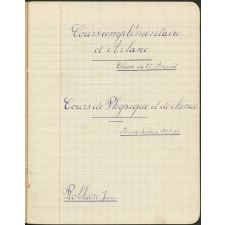 Cours complémentaire
d'Arlanc
Classe de
Cours de Physique et de chimie
Année scolaire
Rolhion Jean